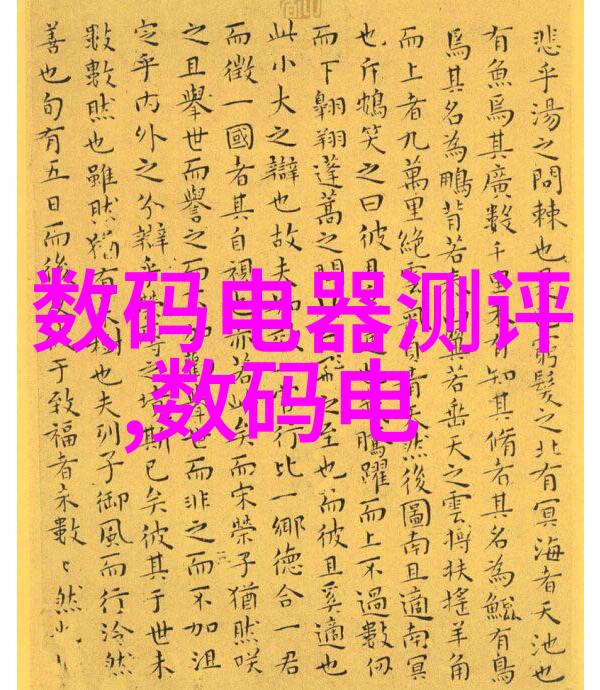 悲乎湯之問棘也窮髮之北有冥海者天池也
有魚焉其廣數千里未有知其脩者其名為鯤有鳥
焉其名為鵬背若垂天之雲摶扶搖羊角
而上者九萬里絕雲氣負青天然後圖南且適南冥
也斥鴳笑之曰彼且騰躍而上不過數仞
而下翱翔蓬蒿之間飛之至也而彼且奚適也
此小大之辯也故夫行比一鄉德合一君
而徵一國者其自視也亦若此矣而宋榮子猶然咲
之且舉世而譽之而不加舉世而非之而不加沮
定乎內外之分辯乎之境斯已矣彼其于世未
數數然也雖然猶有也夫列子御風而行泠然
善也旬有五日而後于致福者未數〻然也
数码电器测评
,数码电